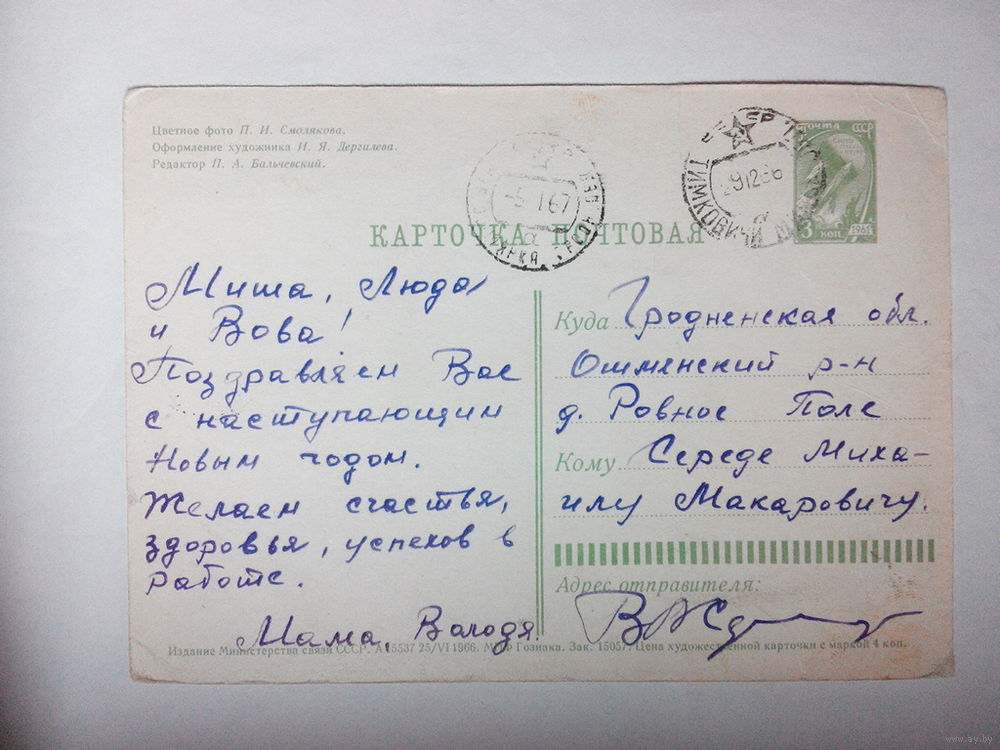 Цветное фото П. И. Смолякова.
Оформление художника И. Я. Дергилева.
Редактор П. А. Бальчевский.
КАРТОЧКА ПОЧТОВАЯ
-5 1 67
29 12 66
ТИМКОВИЧИ
ПОЧТА СССР
3 КОП.
1961
Миша, Люда
и Вова!
Поздравляем Вас
с наступающим
Новым годом.
Желаем счастья,
здоровья, успехов в
работе.
Мама, Володя.
Куда Гродненская обл.
Ошмянский р-н
д. Ровное Поле
Кому Середе Миха-
илу Макаровичу.
Адрес отправителя:
Издание Министерства связи СССР. А 15537 25/VI 1966. МПФ Гознака. Зак. 15057. Цена художественной карточки с маркой 4 коп.
www.ay.by